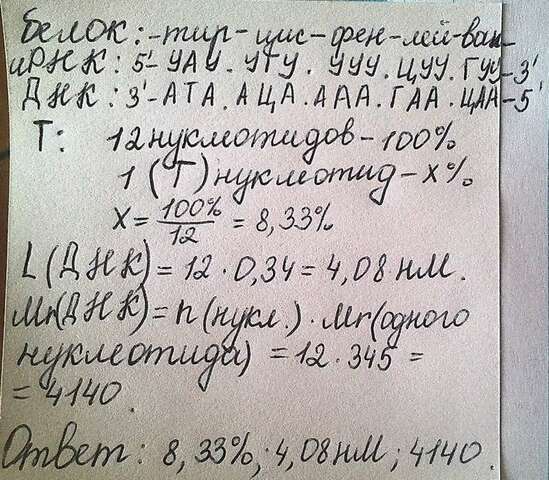 Белок: -тир-цис-фен-лей-вал-
иРНК: 5'-УАУ.УГУ.УУУ.ЦУУ.ГУУ-3'
ДНК: 3'-АТА.АЦА.ААА.ГАА.ЦАА-5'
Т: 12 нуклеотидов-100%
1 (Т) нуклеотид-х%
X = 100%/12 = 8,33%
L(ДНК) = 12 · 0,34 = 4,08 нм.
Mr(ДНК) = n(нукл.) · Mr(одного
нуклеотида) = 12 · 345 =
= 4140.
Ответ: 8,33%; 4,08 нм; 4140.